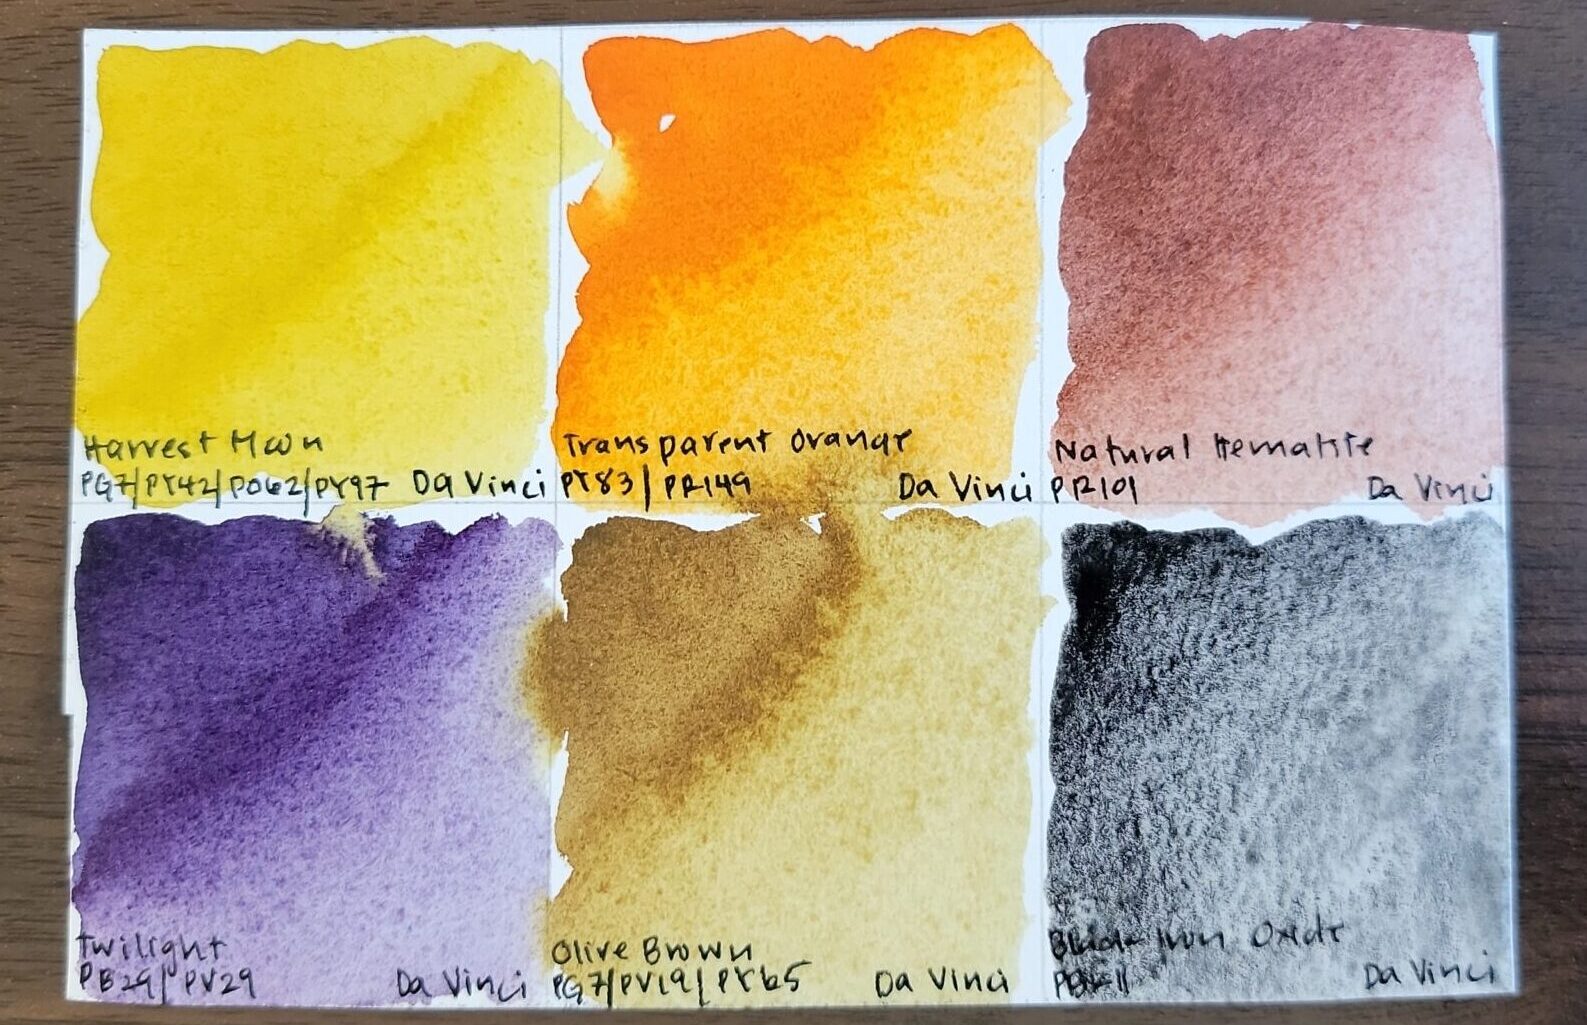 Harvest Moon
PG7/PY42/PO62/PY97 Da Vinci
Transparent Orange
PY83/PR149 Da Vinci
Natural Hematite
PR101 Da Vinci
Twilight
PB29/PV29 Da Vinci
Olive Brown
PG7/PV19/PY65 Da Vinci
Black Iron Oxide
PBk11 Da Vinci